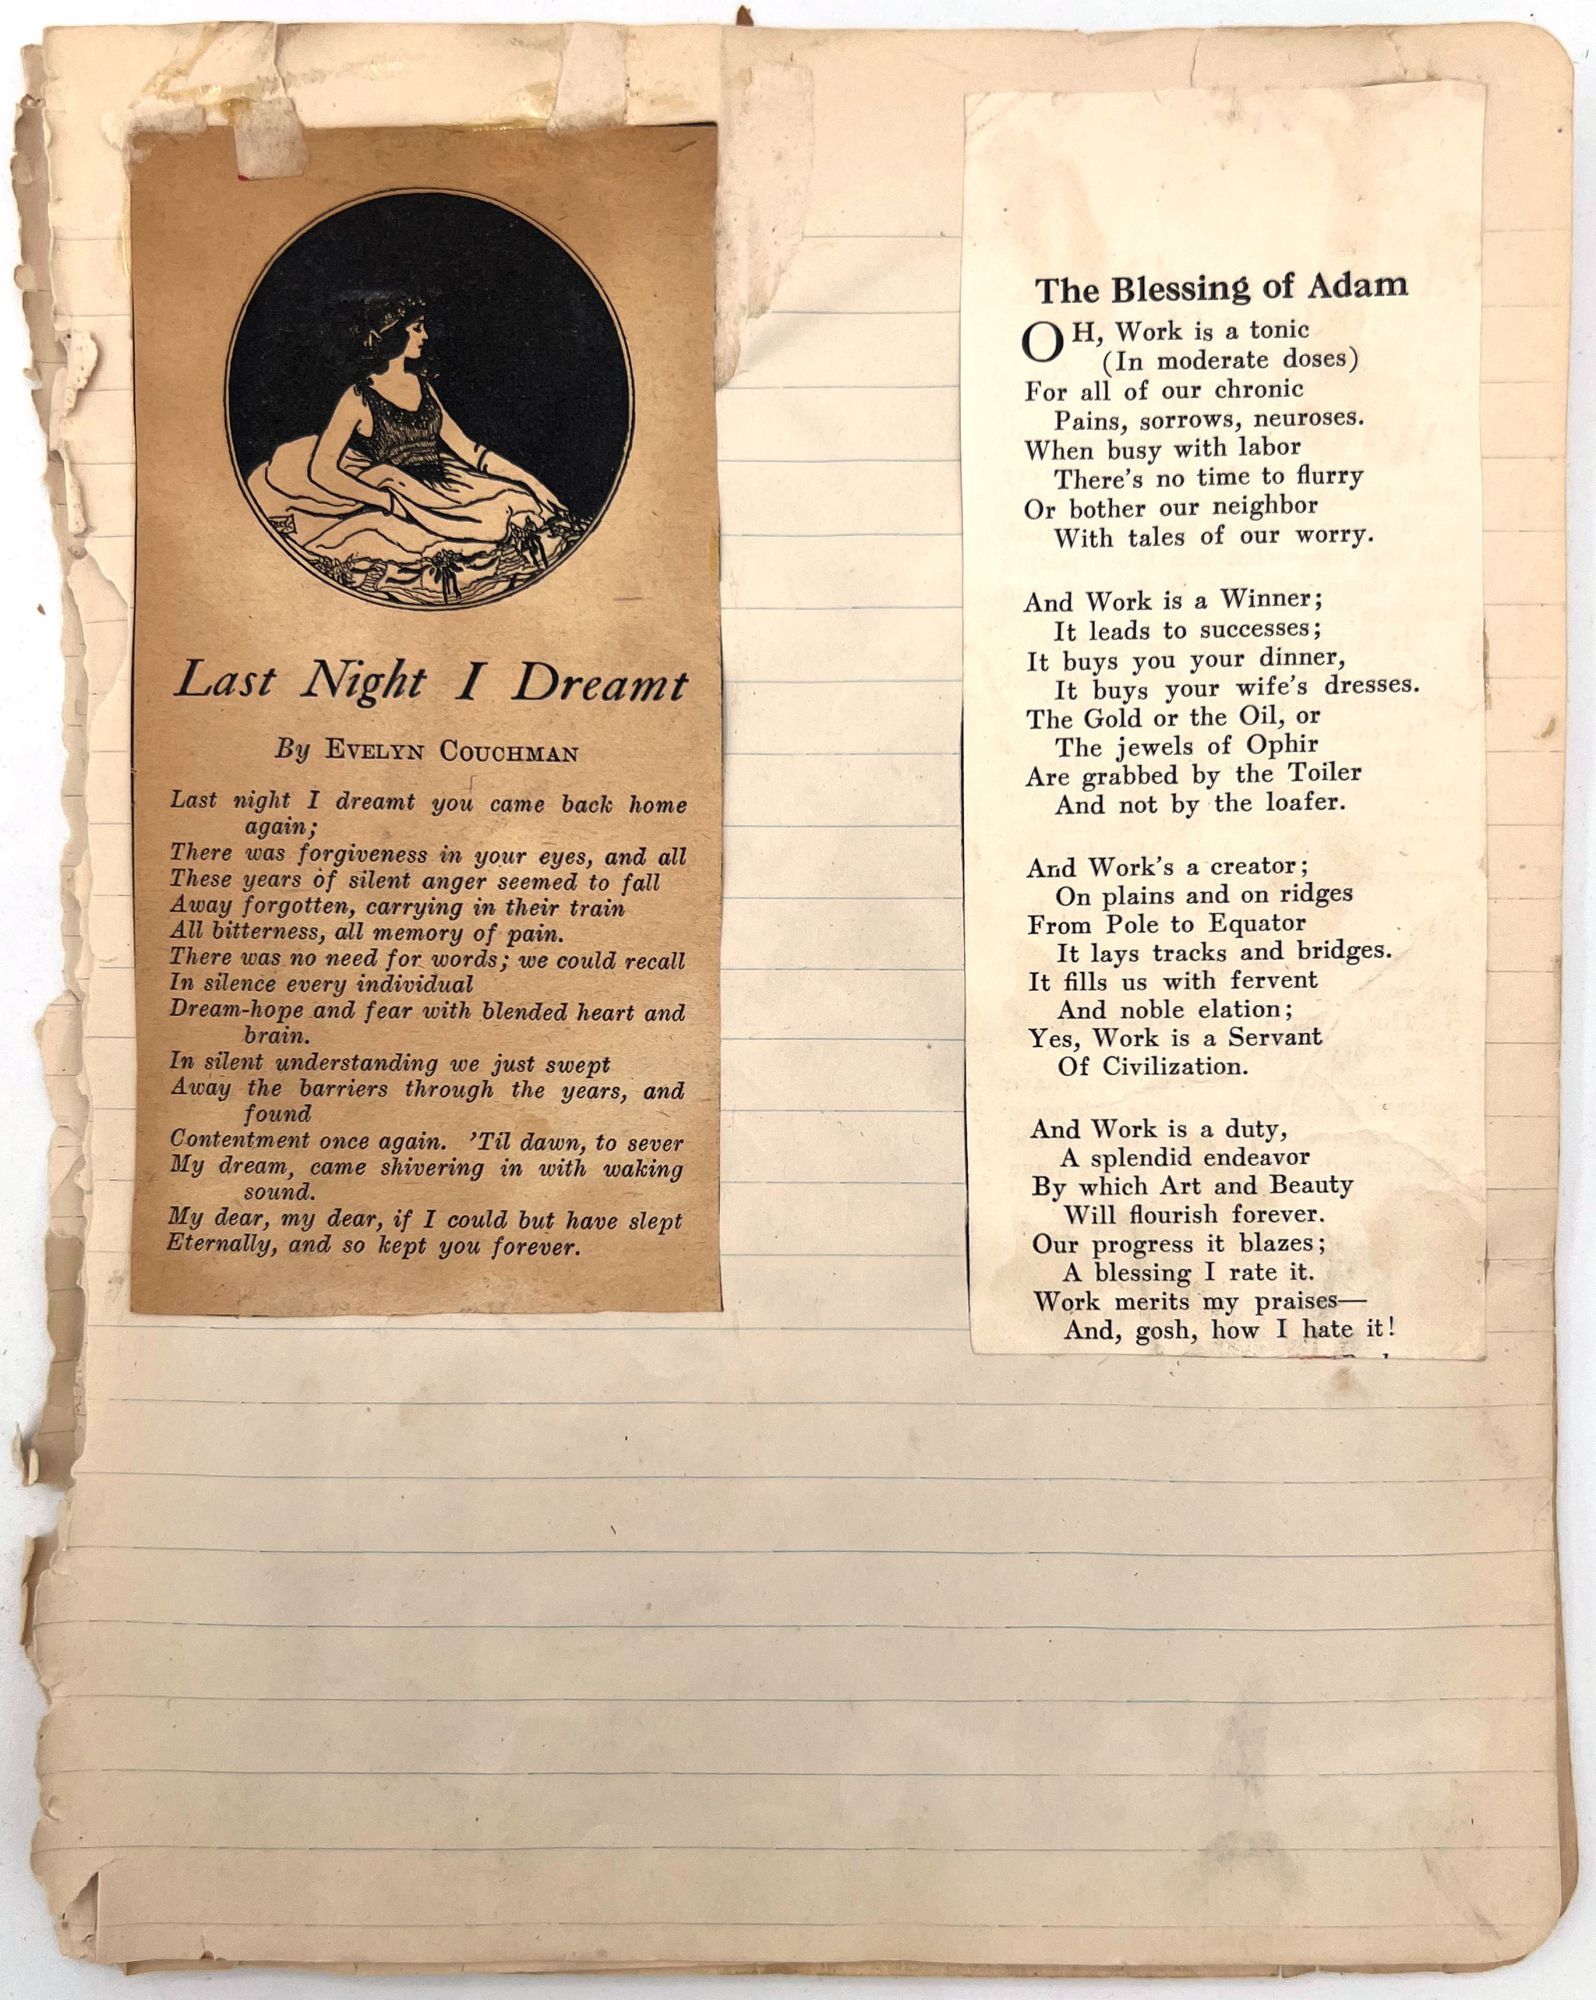 Last Night I Dreamt
By EVELYN COUCHMAN
Last night I dreamt you came back home
again;
There was forgiveness in your eyes, and all
These years of silent anger seemed to fall
Away forgotten, carrying in their train
All bitterness, all memory of pain.
There was no need for words; we could recall
In silence every individual
Dream-hope and fear with blended heart and
brain.
In silent understanding we just swept
Away the barriers through the years, and
found
Contentment once again. 'Til dawn, to sever
My dream, came shivering in with waking
sound.
My dear, my dear, if I could but have slept
Eternally, and so kept you forever.
The Blessing of Adam
OH, Work is a tonic
(In moderate doses)
For all of our chronic
Pains, sorrows, neuroses.
When busy with labor
There's no time to flurry
Or bother our neighbor
With tales of our worry.
And Work is a Winner;
It leads to successes;
It buys you your dinner,
It buys your wife's dresses.
The Gold or the Oil, or
The jewels of Ophir
Are grabbed by the Toiler
And not by the loafer.
And Work's a creator;
On plains and on ridges
From Pole to Equator
It lays tracks and bridges.
It fills us with fervent
And noble elation;
Yes, Work is a Servant
Of Civilization.
And Work is a duty,
A splendid endeavor
By which Art and Beauty
Will flourish forever.
Our progress it blazes;
A blessing I rate it.
Work merits my praises—
And, gosh, how I hate it!